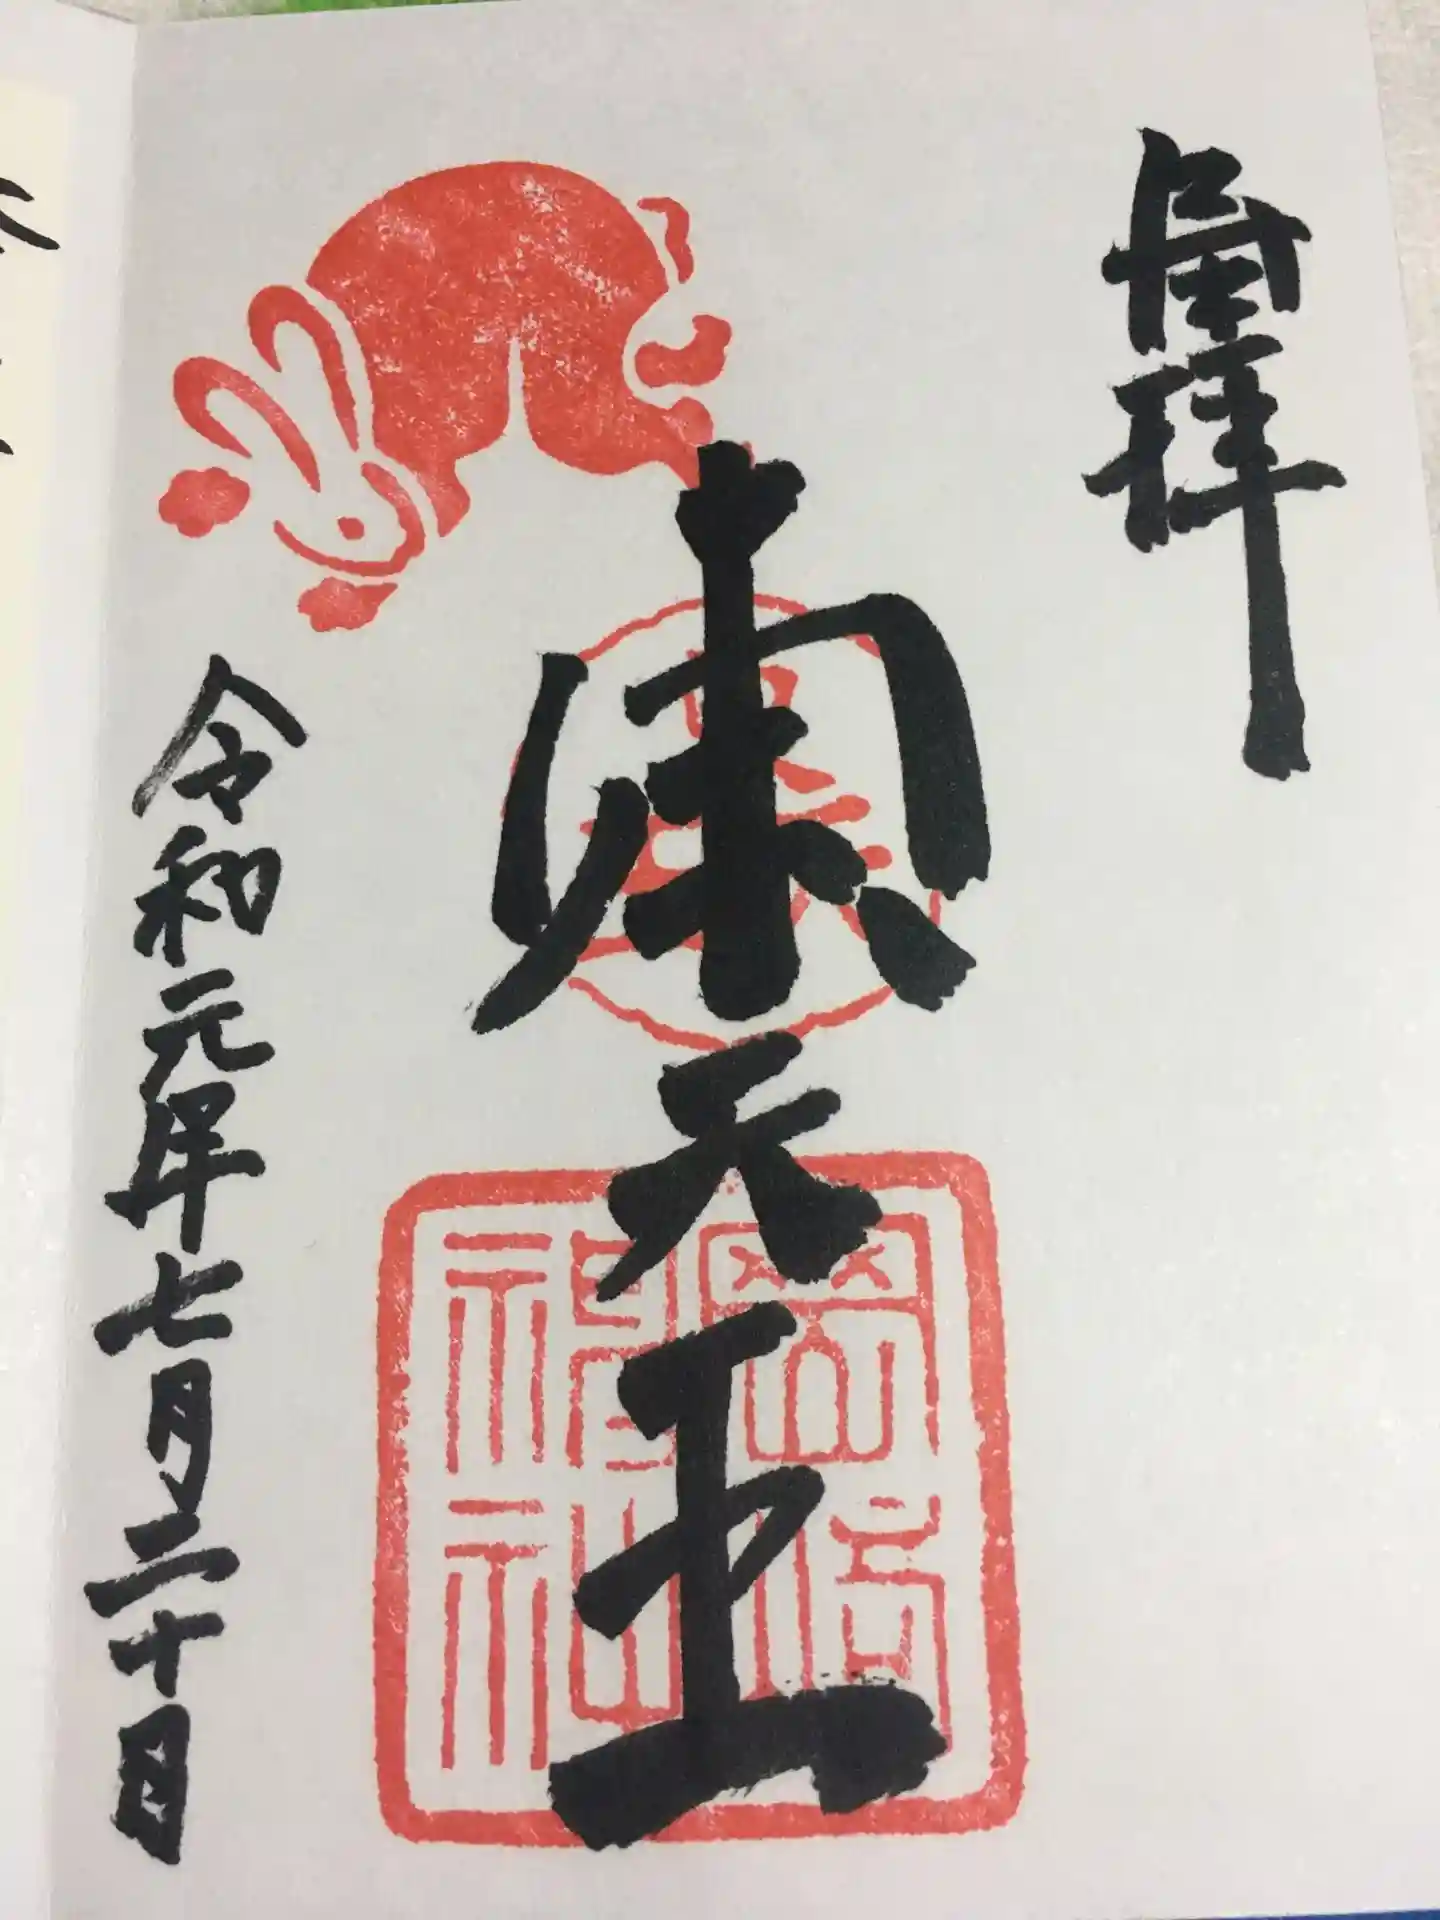 拝
東天王
岡崎
神社
令和元年七月二十日